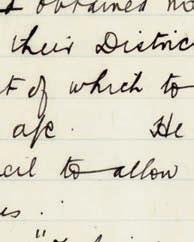 obtained
their Distric
t of which to
He
cil to allow